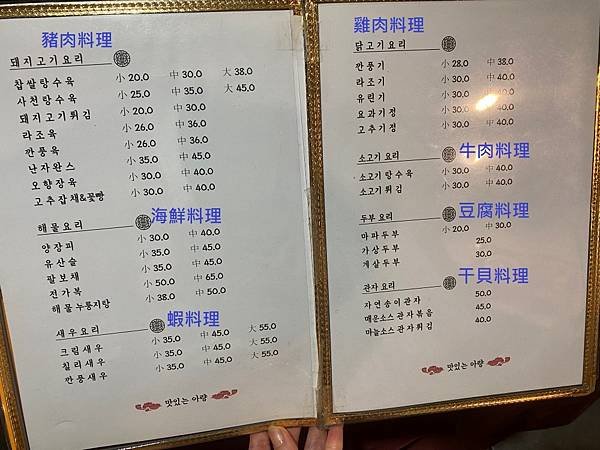 豬肉料理
돼지고기요리
찹쌀탕수육 小 20.0 中 30.0 大 38.0
사천탕수육 小 25.0 中 35.0 大 45.0
돼지고기튀김 小 20.0 中 30.0
라조육 小 26.0 中 36.0
깐풍육 小 26.0 中 36.0
난자완스 小 35.0 中 45.0
오향장육 小 30.0 中 40.0
고추잡채&꽃빵 小 30.0 中 40.0
海鮮料理
해물요리
양장피 小 30.0 中 40.0
유산슬 小 35.0 中 45.0
팔보채 小 35.0 中 45.0
전가복 小 50.0 中 65.0
해물누룽지탕 小 38.0 中 50.0
蝦料理
새우요리
크림새우 小 35.0 中 45.0 大 55.0
칠리새우 小 35.0 中 45.0 大 55.0
깐풍새우 小 35.0 中 45.0 大 55.0
맛있는 아량
雞肉料理
닭고기요리
깐풍기 小 28.0 中 38.0
라조기 小 30.0 中 40.0
유린기 小 30.0 中 40.0
요과기정 小 30.0 中 40.0
고추기정 小 30.0 中 40.0
牛肉料理
소고기 요리
소고기 탕수육 小 30.0 中 40.0
소고기 튀김 小 30.0 中 40.0
豆腐料理
두부 요리
마파두부 小 20.0 中 30.0
가상두부 25.0
게살두부 30.0
干貝料理
관자 요리
자연송이관자 50.0
매운소스관자볶음 45.0
마늘소스관자튀김 40.0
맛있는 아량